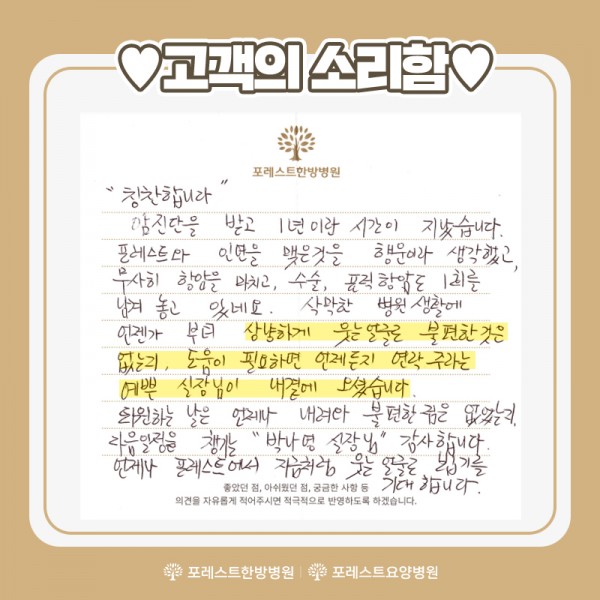 ♥고객의 소리함♥
포레스트한방병원
"칭찬합니다"
암진단을 받고 1년이란 시간이 지났습니다.
포레스트와 인연을 맺은것을 행운이라 생각했고,
무사히 항암을 마치고, 수술, 표적항암도 1회를
남겨 놓고 있네요. 삭막한 병원 생활에
언젠가 부터 상냥하게 웃는얼굴로 불편한것은
없는지, 도움이 필요하면 언제든지 연락주라는
예쁜 실장님이 내곁에 오셨습니다.
퇴원하는 날은 언제나 내려와 불편한 점은 없었는지,
다음일정을 챙기는 "박나영 실장님" 감사합니다.
언제나 포레스트에서 지금처럼 웃는 얼굴로 뵙기를
기대합니다.
좋았던 점, 아쉬웠던 점, 궁금한 사항 등
의견을 자유롭게 적어주시면 적극적으로 반영하도록 하겠습니다.
포레스트한방병원 | 포레스트요양병원